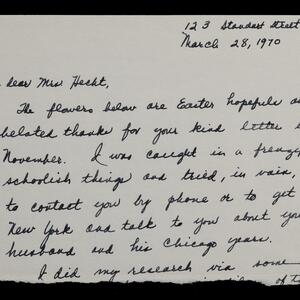 123 Standart Street
March 28, 1970
dear Mrs Hecht,
The flowers below are Easter hopefuls as
belated thanks for your kind letter
November. I was caught in a frenzy
schoolish things and tried, in vain,
to contact you by phone or to get
New York and talk to you about you
husband and his Chicago years.
I did my research via some